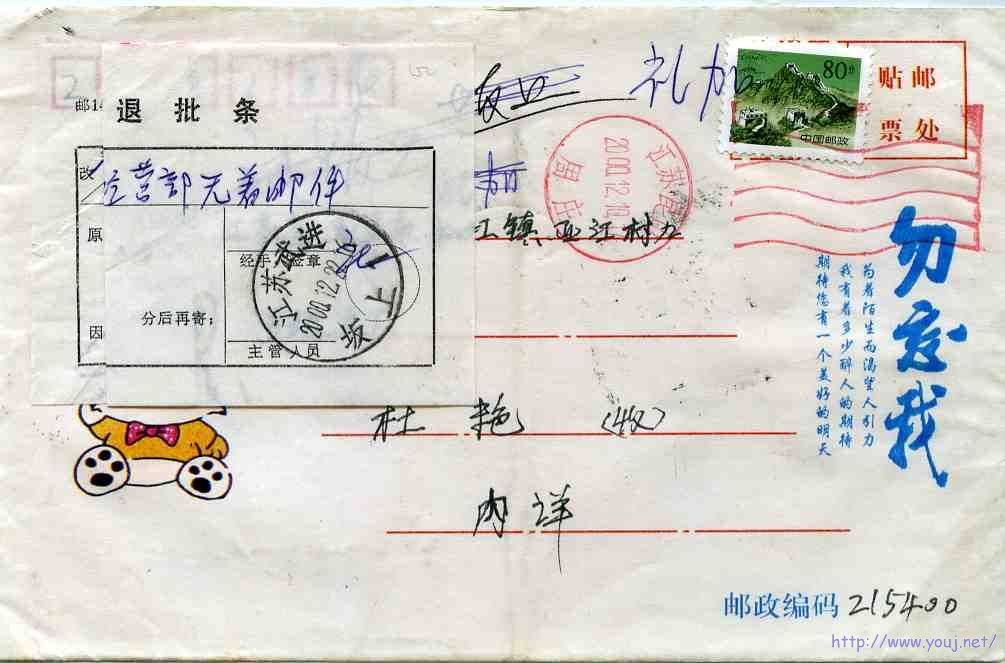 退批条
礼加
80分
中国邮政
贴邮
票处
江苏
2000.12.19
周庄
改
原
因
营部无着邮件
经手
签章
分后再寄;
主管人员
江苏武进
2000.12.22
坂下
江镇
江村
杜艳(收)
内详
勿忘我
为着陌生而渴望人引力
我有着多少醉人的期待
期待您有一个美好的明天
邮政编码 215400
http://www.youj.net/